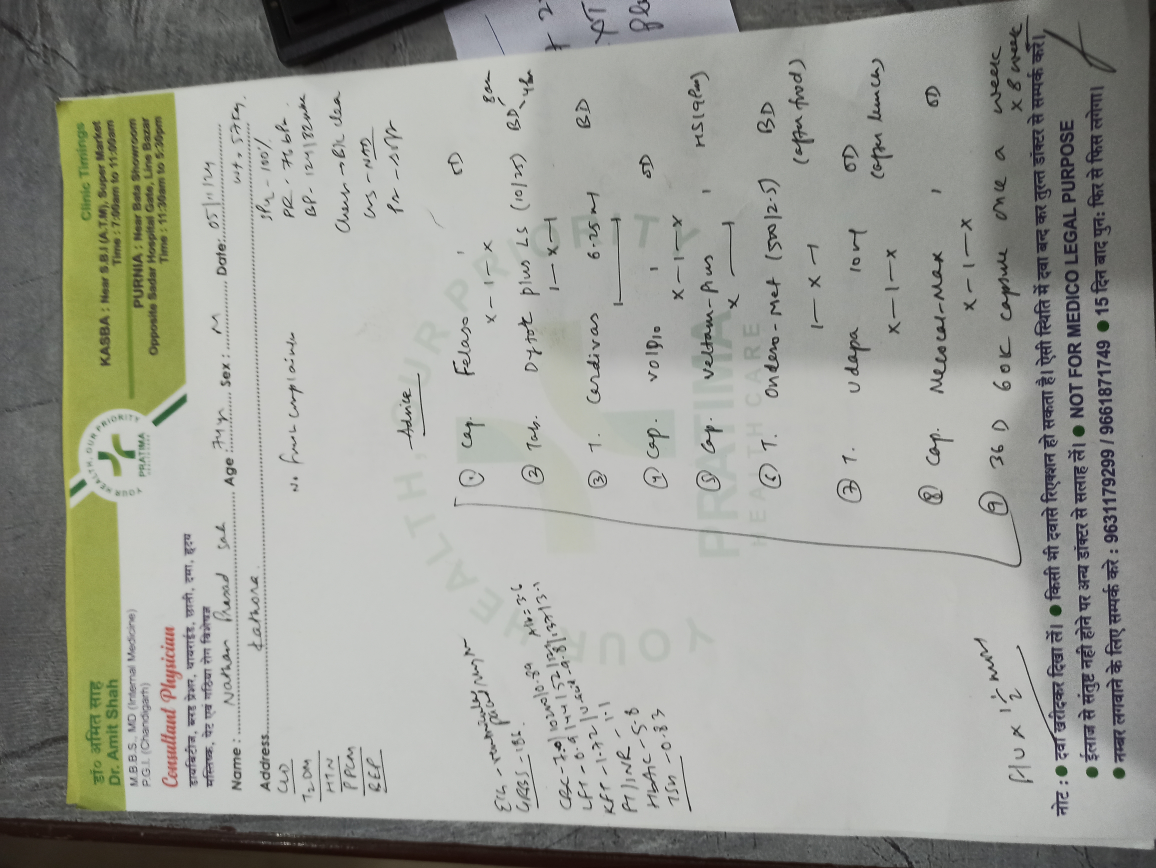 डॉ० अमित साह
Dr. Amit Shah
M.B.B.S., MD (Internal Medicine)
P.G.I. (Chandigarh)
Consultant Physician
डायबिटीज, ब्लड प्रेशर, थायराईड, छाती, दमा, हृदय
मस्तिष्क, पेट एवं गठिया रोग विशेषज्ञ
YOUR HEALTH, OUR PRIORITY
PRATIMA
Clinic Timings
KASBA : Near S.B.I (A.T.M), Super Market
Time : 7:00am to 11:00am
PURNIA : Near Bata Showroom
Opposite Sadar Hospital Gate, Line Bazar
Time : 11:30am to 5:30pm
Name : Nathan Prasad sah Age : 74yr Sex : M Date: 05/11/24
Address Kathora
wt. 57kg
T2DM
HTN
PPCM
BEP
No fresh complaints
SPO2 - 100%
PR - 76 bPm
BP - 124/82
Chest - B/L clear
CNS - NAD
PA - soft
Advice
① Cap. Felaso 1 OD
x-1-x
② Tab. Dytor plus LS (10/25) BD
8am
4pm
1-x-1
③ T. Cardivas 6.25 BD
1 1
④ Cap. VOLD10 1 OD
x-1-x
⑤ Cap. Veltam-Plus 1 HS (9PM)
x 1
⑥ T. Ondero-Met (500/2.5) BD
1-x-1 (after food)
⑦ T. Udapa 10 OD
x-1-x (after lunch)
⑧ Cap. Max 1 OD
x-1-x
⑨ 36 D 60K capsule once a week
x 8 week
ECG - ventricular
GRBS - 186
CBC -
LFT - 0.9
KFT - 1.72
PT/INR - 1.1
HbA1C - 5.8
TSH - 0.83
F/U x 1½
YOUR HEALTH, OUR PRIORITY
PRATIMA
HEALTH CARE
नोट : ● दवा खरीदकर दिखा लें। ● किसी भी दवासे रिएक्शन हो सकता है। ऐसी स्थिति में दवा बन्द कर तुरन्त डॉक्टर से सम्पर्क करें।
● ईलाज से संतुष्ट नही होने पर अन्य डॉक्टर से सलाह लें। ● NOT FOR MEDICO LEGAL PURPOSE
● नम्बर लगवाने के लिए सम्पर्क करे : 9631179299 / 9661871749 ● 15 दिन बाद पुनः फिर से फिस लगेगा।